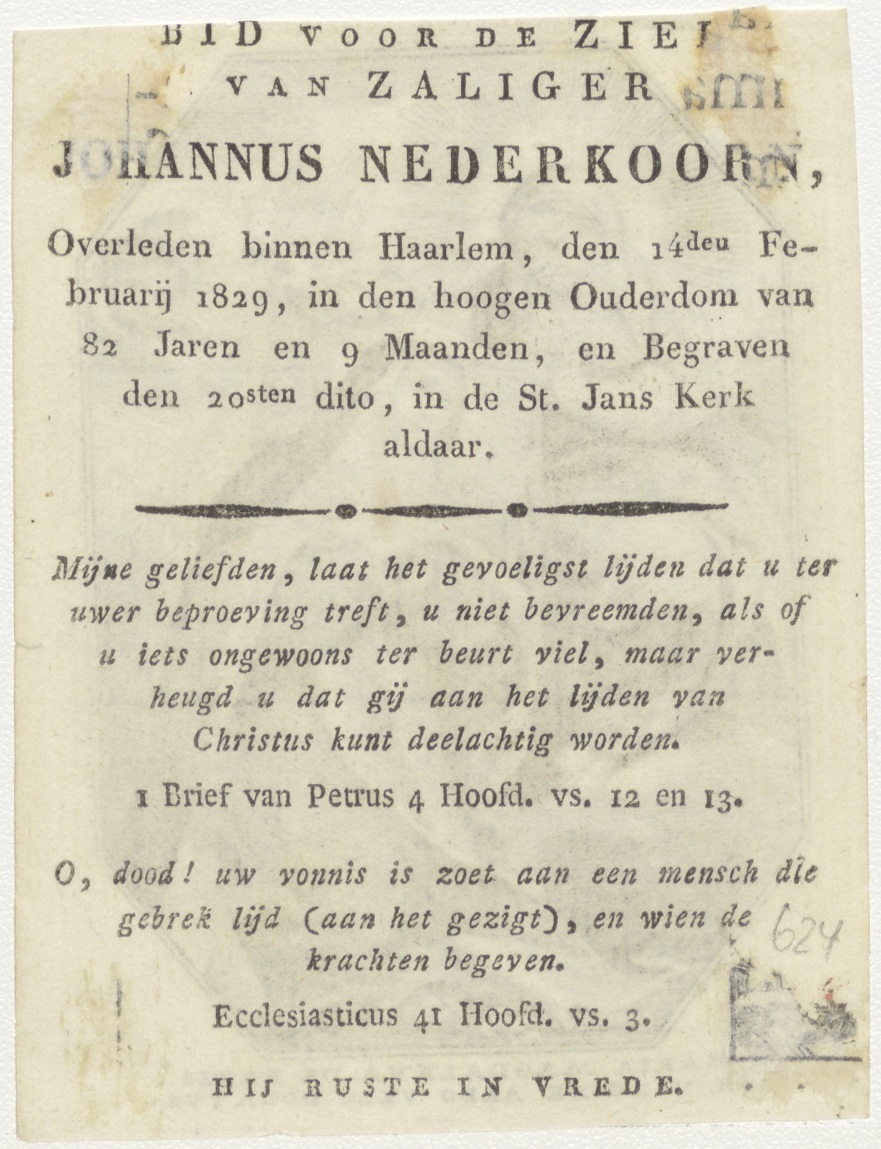 BID VOOR DE ZIEL
VAN ZALIGER
JOHANNUS NEDERKOORN,
Overleden binnen Haarlem, den 14den Fe-
bruarij 1829, in den hoogen Ouderdom van
82 Jaren en 9 Maanden, en Begraven
den 20sten dito, in de St. Jans Kerk
aldaar.
Mijne geliefden, laat het gevoeligst lijden dat u ter
uwer beproeving treft, u niet bevreemden, als of
u iets ongewoons ter beurt viel, maar ver-
heugd u dat gij aan het lijden van
Christus kunt deelachtig worden.
1 Brief van Petrus 4 Hoofd. vs. 12 en 13.
O, dood! uw vonnis is zoet aan een mensch die
gebrek lijd (aan het gezigt), en wien de
krachten begeven.
624
Ecclesiasticus 41 Hoofd. vs. 3.
HIJ RUSTE IN VREDE.